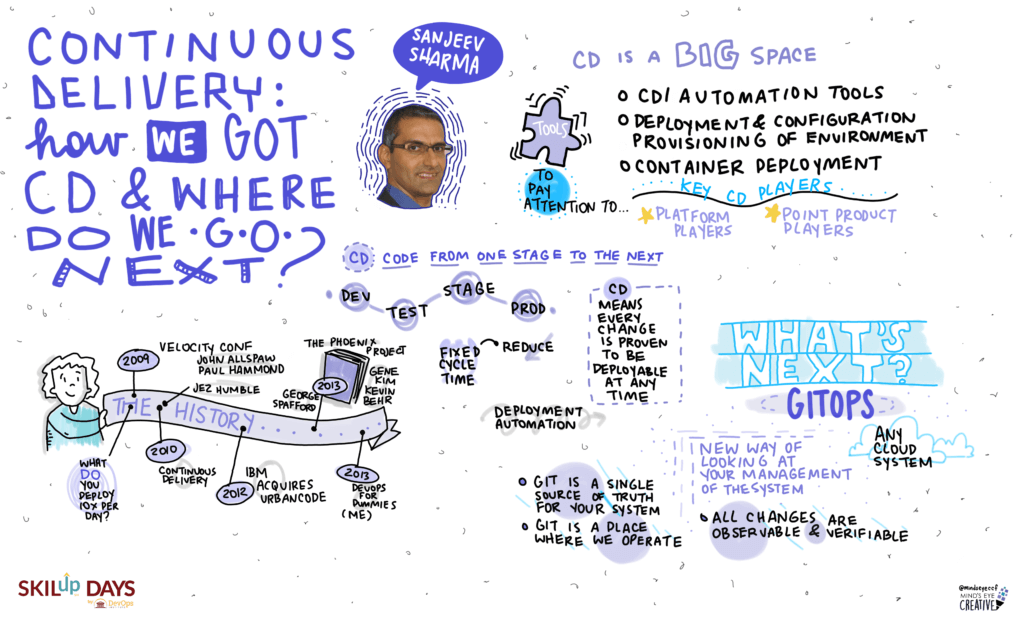 CONTINUOUS
DELIVERY:
how WE GOT
CD & WHERE
DO WE •G•O•
NEXT?
SANJEEV
SHARMA
CD IS A BIG SPACE
TOOLS
TO
PAY
ATTENTION TO...
CD/AUTOMATION TOOLS
DEPLOYMENT & CONFIGURATION
PROVISIONING OF ENVIRONMENT
CONTAINER DEPLOYMENT
KEY CD PLAYERS
PLATFORM
PLAYERS
POINT PRODUCT
PLAYERS
CD CODE FROM ONE STAGE TO THE NEXT
DEV
TEST
STAGE
PROD
FIXED
CYCLE
TIME
REDUCE
DEPLOYMENT
AUTOMATION
CD
MEANS
EVERY
CHANGE
IS PROVEN
TO BE
DEPLOYABLE
AT ANY
TIME
THE HISTORY
2009
VELOCITY CONF
JOHN ALLSPAW
PAUL HAMMOND
WHAT
DO
YOU
DEPLOY
10X PER
DAY?
JEZ HUMBLE
2010
CONTINUOUS
DELIVERY
2012
IBM
ACQUIRES
URBANCODE
THE PHOENIX
PROJECT
2013
GENE
KIM
KEVIN
BEHR
GEORGE
SPAFFORD
2013
DEVOPS
FOR
DUMMIES
(ME)
WHAT'S
NEXT?
GITOPS
ANY
CLOUD
SYSTEM
NEW WAY OF
LOOKING AT
YOUR MANAGEMENT
OF THE SYSTEM
GIT IS A SINGLE
SOURCE OF TRUTH
FOR YOUR SYSTEM
GIT IS A PLACE
WHERE WE OPERATE
ALL CHANGES ARE
OBSERVABLE & VERIFIABLE
SKILup DAYS
DevOps
@mindseyeccf
MIND'S EYE
CREATIVE